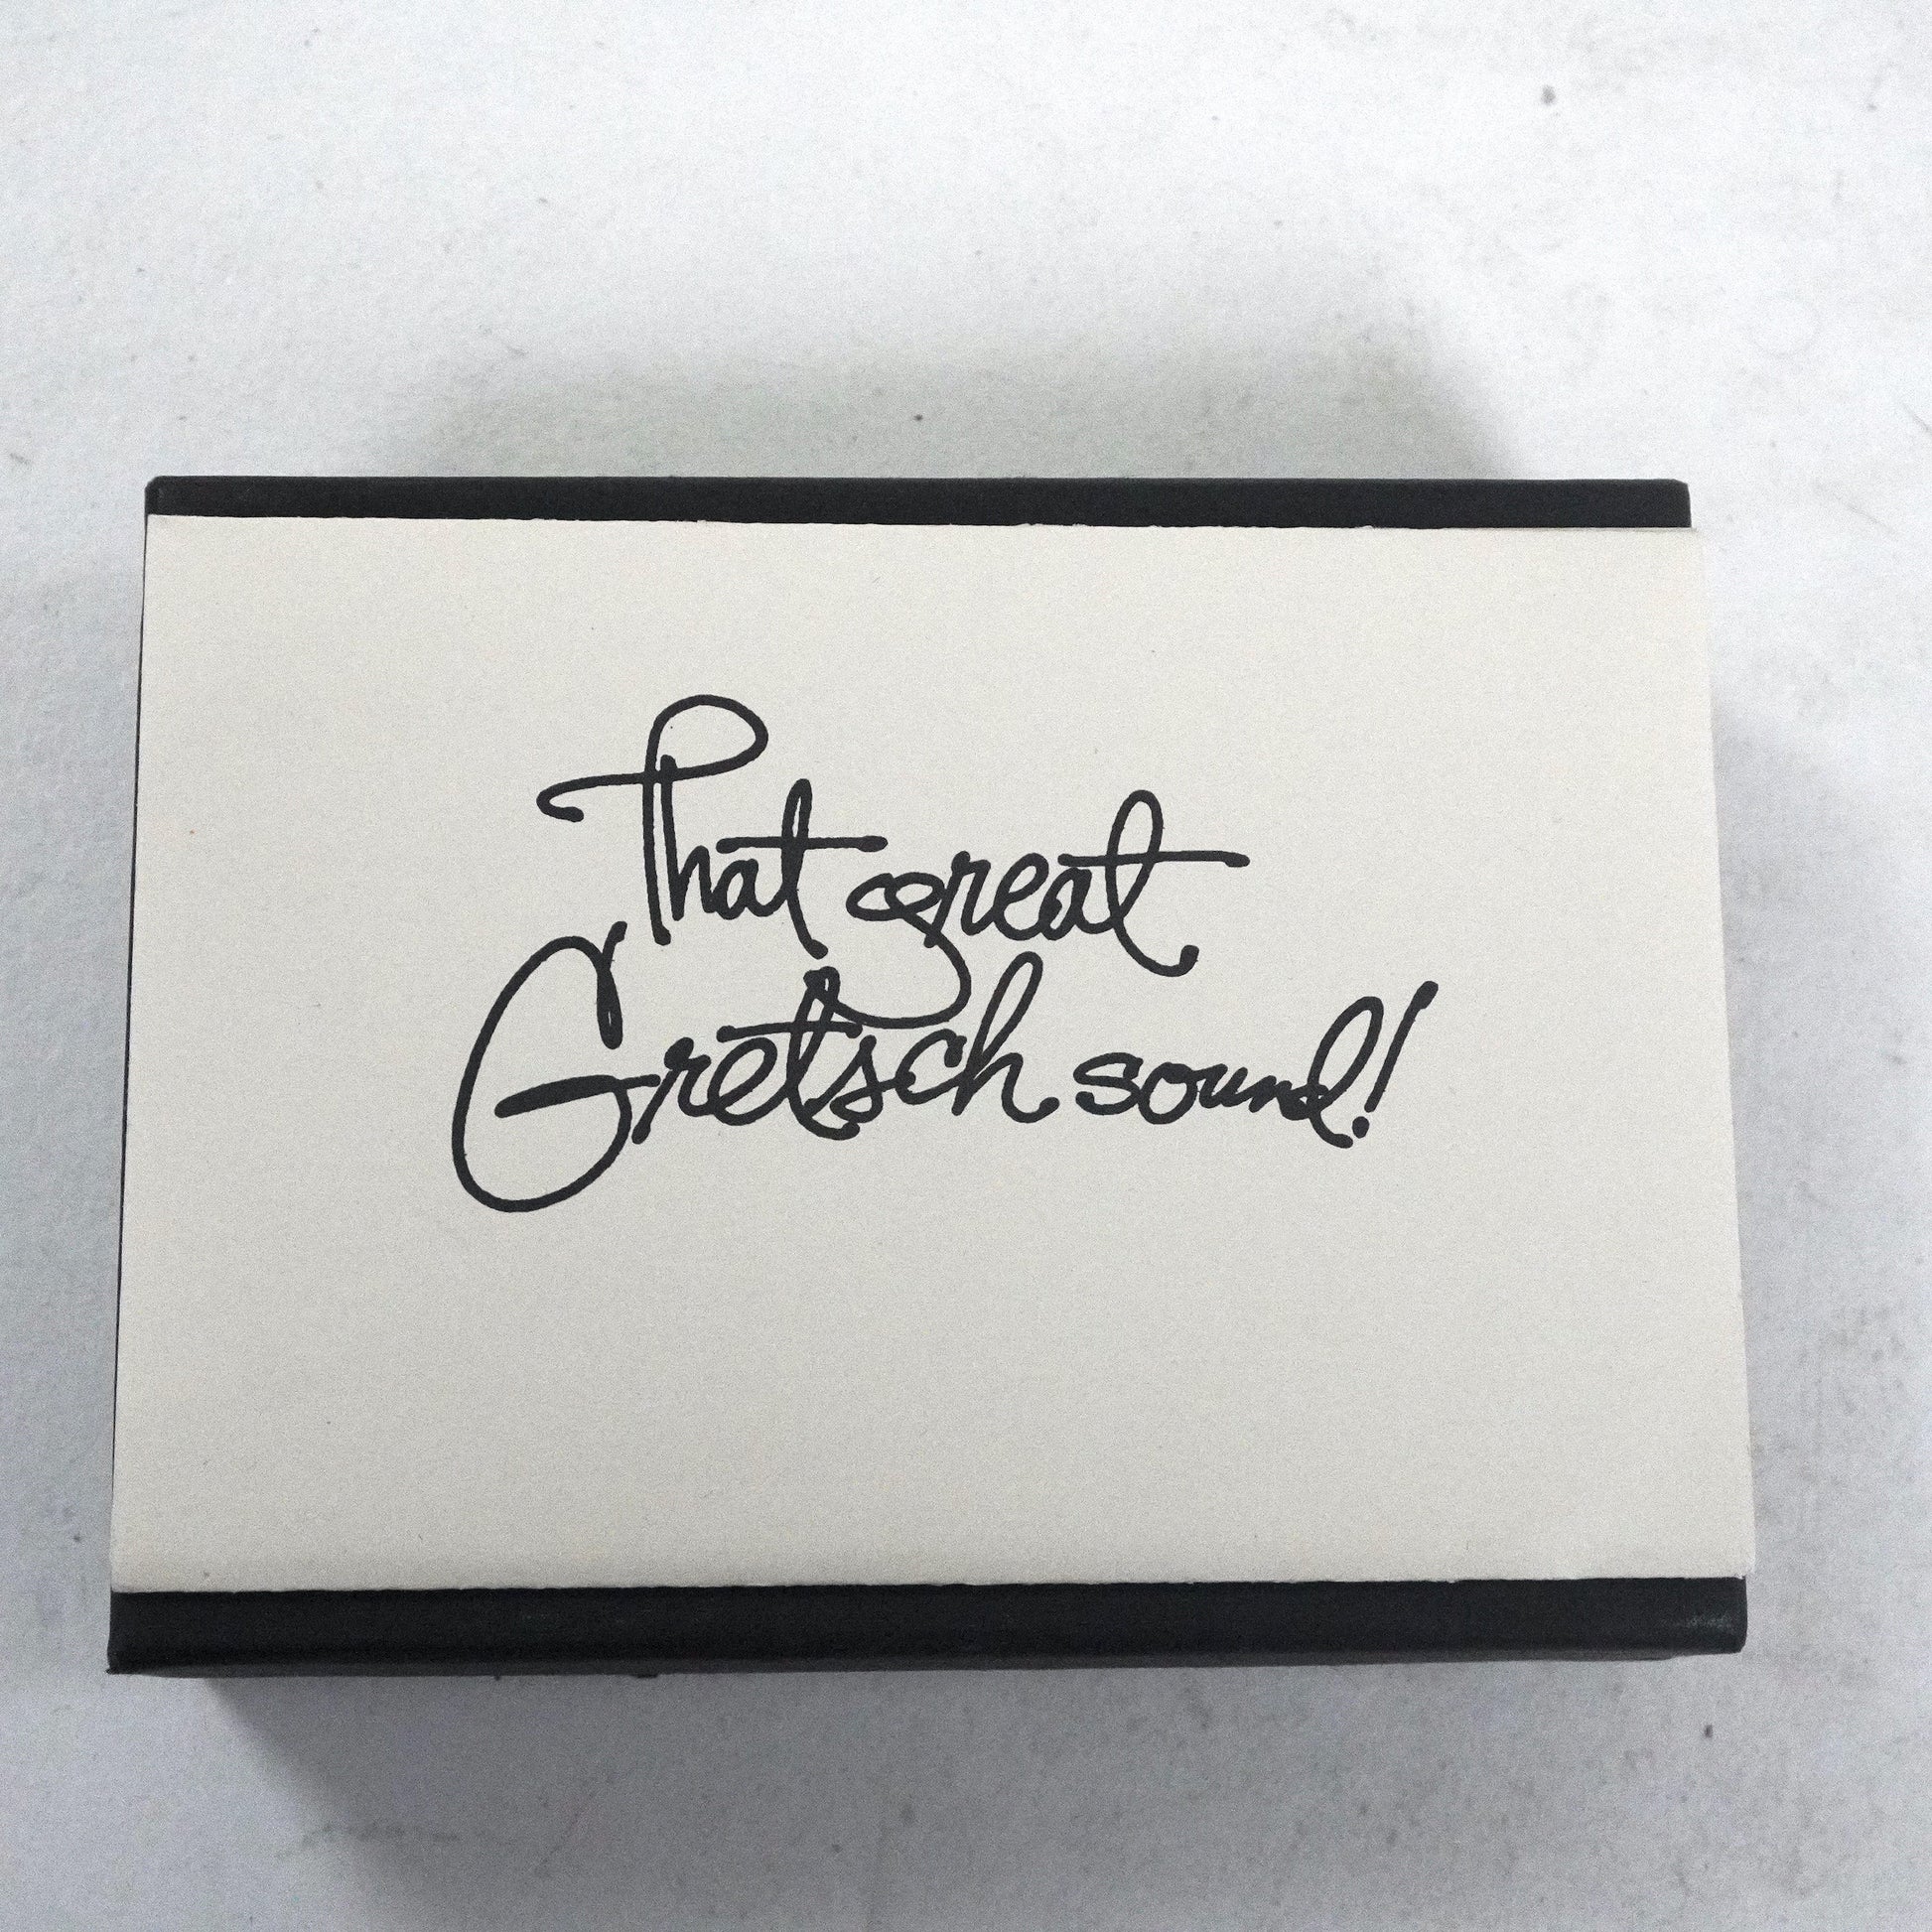 That great
Gretsch sound!